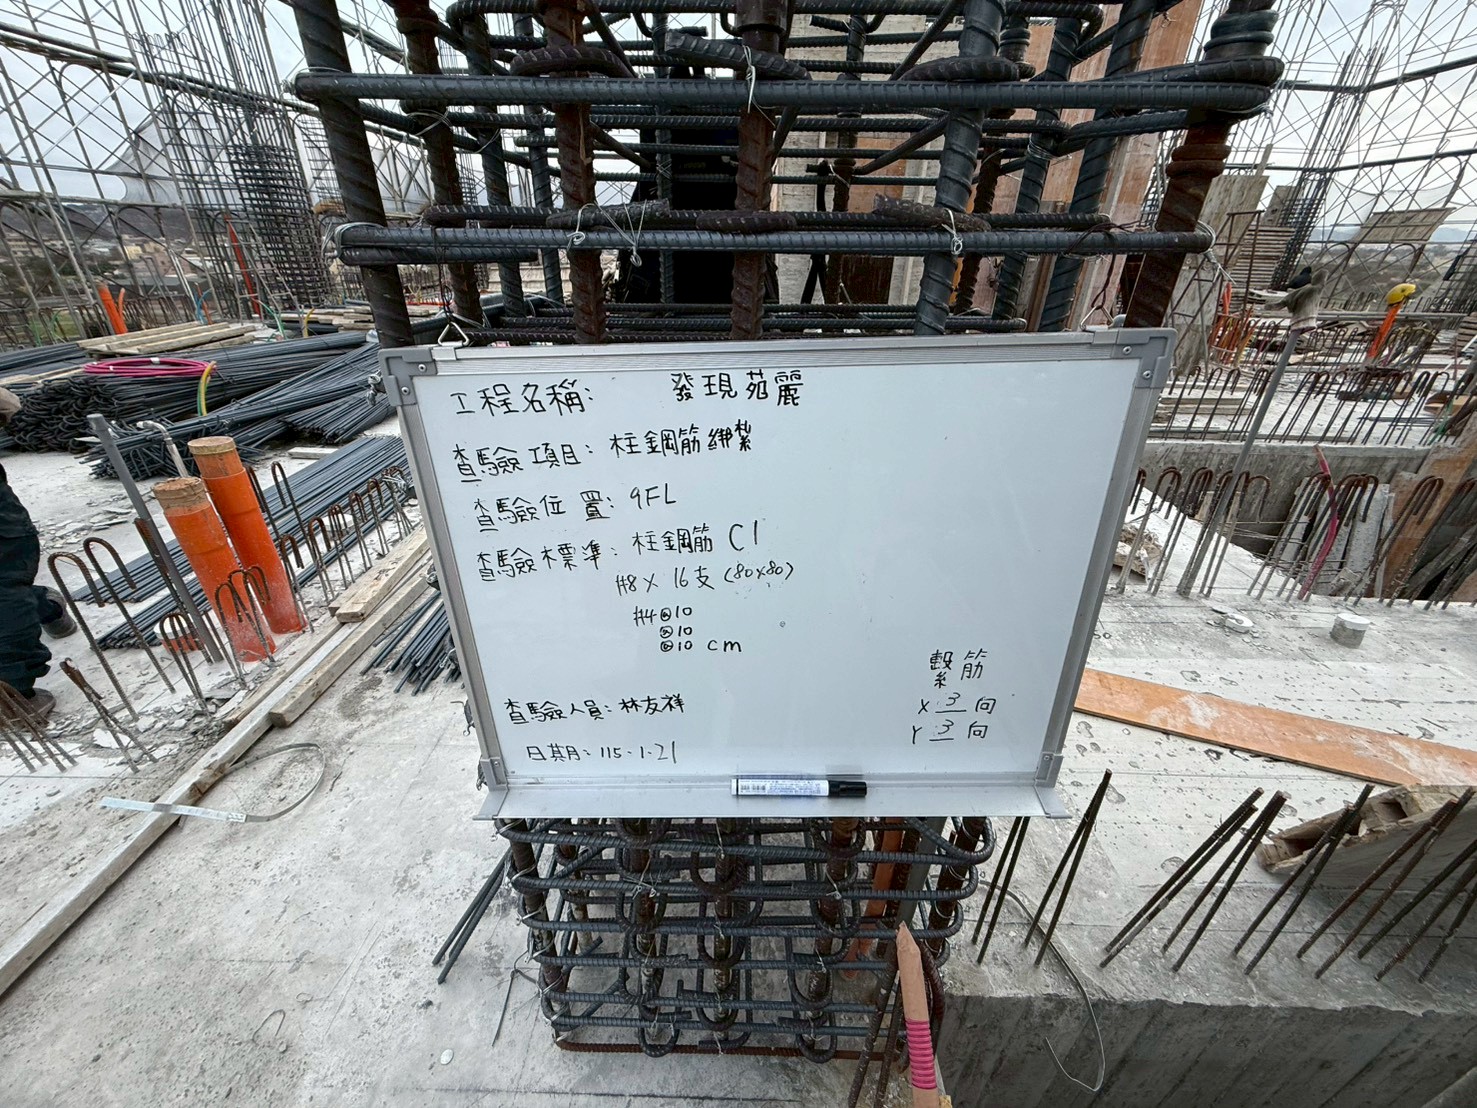 工程名稱: 發現苑麗
查驗項目: 柱鋼筋綁紮
查驗位置: 9FL
查驗標準: 柱鋼筋 C1
#8 X 16支 (80x80)
#4@10
@10
@10 cm
繫筋
X 3 向
Y 3 向
查驗人員: 林友祥
日期: 115.1.21